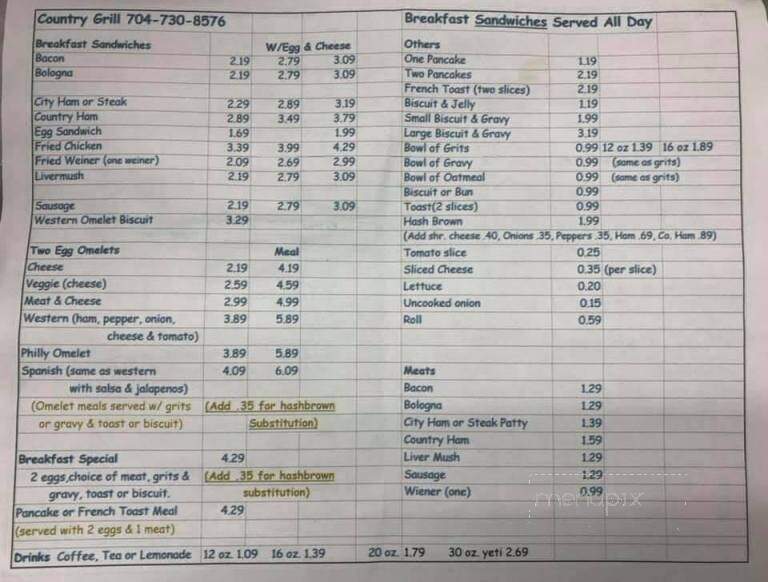 Country Grill 704-730-8576
Breakfast Sandwiches W/Egg & Cheese
Bacon 2.19 2.79 3.09
Bologna 2.19 2.79 3.09
City Ham or Steak 2.29 2.89 3.19
Country Ham 2.89 3.49 3.79
Egg Sandwich 1.69 1.99
Fried Chicken 3.39 3.99 4.29
Fried Weiner (one weiner) 2.09 2.69 2.99
Livermush 2.19 2.79 3.09
Sausage 2.19 2.79 3.09
Western Omelet Biscuit 3.29
Two Egg Omelets Meal
Cheese 2.19 4.19
Veggie (cheese) 2.59 4.59
Meat & Cheese 2.99 4.99
Western (ham, pepper, onion, 3.89 5.89
cheese & tomato)
Philly Omelet 3.89 5.89
Spanish (same as western 4.09 6.09
with salsa & jalapenos)
(Omelet meals served w/ grits (Add .35 for hashbrown
or gravy & toast or biscuit) Substitution)
Breakfast Special 4.29
2 eggs,choice of meat, grits & (Add .35 for hashbrown
gravy, toast or biscuit. substitution)
Pancake or French Toast Meal 4.29
(served with 2 eggs & 1 meat)
Breakfast Sandwiches Served All Day
Others
One Pancake 1.19
Two Pancakes 2.19
French Toast (two slices) 2.19
Biscuit & Jelly 1.19
Small Biscuit & Gravy 1.99
Large Biscuit & Gravy 3.19
Bowl of Grits 0.99 12 oz 1.39 16 oz 1.89
Bowl of Gravy 0.99 (same as grits)
Bowl of Oatmeal 0.99 (same as grits)
Biscuit or Bun 0.99
Toast(2 slices) 0.99
Hash Brown 1.99
(Add shr. cheese .40, Onions .35, Peppers .35, Ham .69, Co. Ham .89)
Tomato slice 0.25
Sliced Cheese 0.35 (per slice)
Lettuce 0.20
Uncooked onion 0.15
Roll 0.59
Meats
Bacon 1.29
Bologna 1.29
City Ham or Steak Patty 1.39
Country Ham 1.59
Liver Mush 1.29
Sausage 1.29
Wiener (one) 0.99
menupix
Drinks Coffee, Tea or Lemonade 12 oz. 1.09 16 oz. 1.39 20 oz. 1.79 30 oz. yeti 2.69